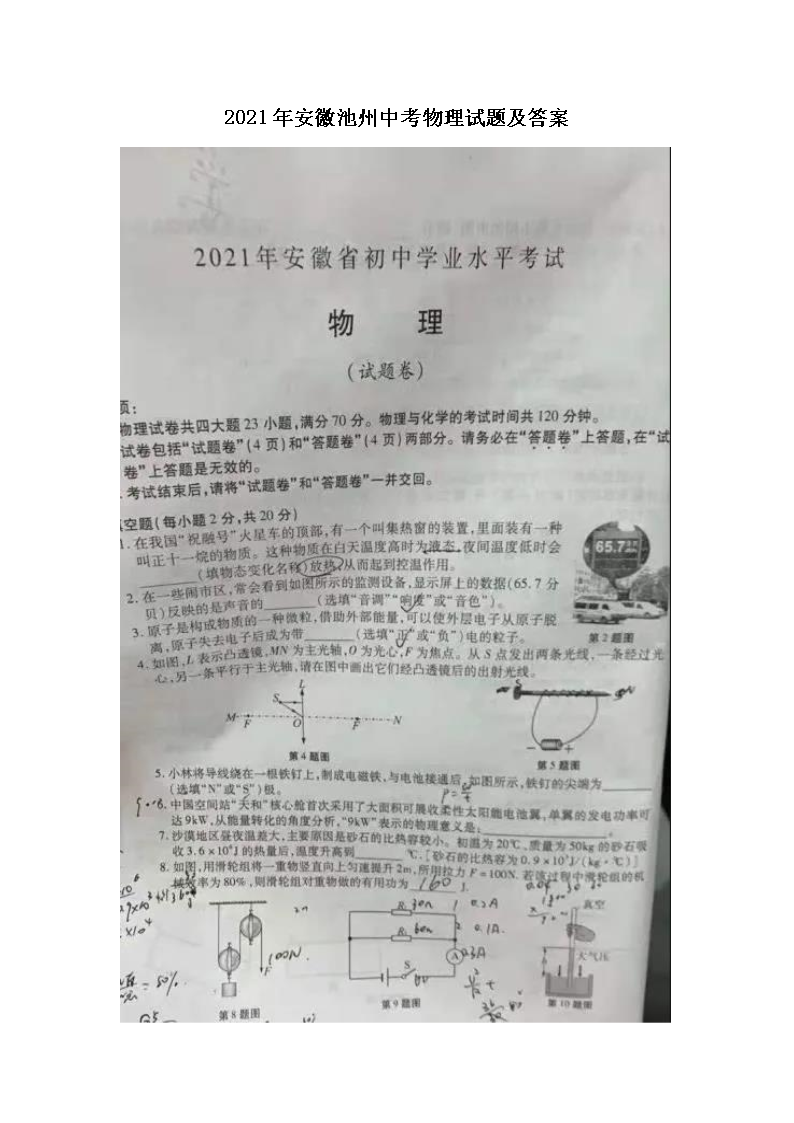 2021年安徽池州中考物理试题及答案
2021年安徽省初中学业水平考试
物 理
(试题卷)
项:
物理试卷共四大题23小题,满分70分。物理与化学的考试时间共120分钟。
试卷包括“试题卷”(4页)和“答题卷”(4页)两部分。请务必在“答题卷”上答题,在“试
卷”上答题是无效的。
.考试结束后,请将“试题卷”和“答题卷”一并交回。
空题(每小题2分,共20分)
1.在我国“祝融号”火星车的顶部,有一个叫集热窗的装置,里面装有一种
叫正十一烷的物质。这种物质在白天温度高时为液态,夜间温度低时会
______(填物态变化名称)放热,从而起到控温作用。
65.7
2.在一些闹市区,常会看到如图所示的监测设备,显示屏上的数据(65.7分
贝)反映的是声音的______(选填“音调”“响度”或“音色”)。
3.原子是构成物质的一种微粒,借助外部能量,可以使外层电子从原子脱
离,原子失去电子后成为带______(选填“正”或“负”)电的粒子。
第2题图
4.如图,L表示凸透镜,MN为主光轴,O为光心,F为焦点。从S点发出两条光线,一条经过光
心,另一条平行于主光轴,请在图中画出它们经凸透镜后的出射光线。
L
S
M F O F N
S N
- +
第4题图
第5题图
5.小林将导线绕在一根铁钉上,制成电磁铁,与电池接通后,如图所示,铁钉的尖端为______
(选填“N”或“S”)极。
6.中国空间站“天和”核心舱首次采用了大面积可展收柔性太阳能电池翼,单翼的发电功率可
达9kW,从能量转化的角度分析,“9kW”表示的物理意义是:______。
7.沙漠地区昼夜温差大,主要原因是砂石的比热容较小。初温为20℃、质量为50kg的砂石吸
收3.6×10⁵J的热量后,温度升高到______℃。[砂石的比热容为0.9×10³J/(kg·℃)]
8.如图,用滑轮组将一重物竖直向上匀速提升2m,所用拉力F=100N。若该过程中滑轮组的机
械效率为80%,则滑轮组对重物做的有用功为 160 J.
R₁ 30Ω 1 0.2A
R₂ 60Ω 2 0.1A.
A 0.3A
S
100N
F
真空
大气压
h
= 80%
第8题图
第9题图
第10题图